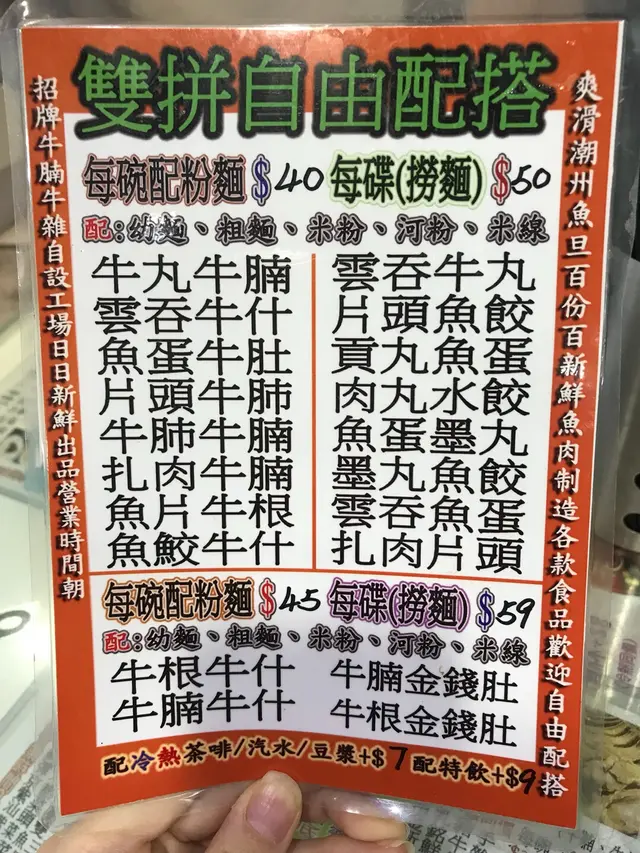 雙拼自由配搭
招牌牛腩牛雜自設工場日日新鮮出品營業時間朝
爽滑潮州魚旦百份百新鮮魚肉制造各款食品歡迎自由配搭
每碗配粉麵$40 每碟(撈麵)$50
配:幼麵、粗麵、米粉、河粉、米線
牛丸牛腩
雲吞牛什
魚蛋牛肚
片頭牛肺
牛肺牛腩
扎肉牛腩
魚片牛根
魚鮫牛什
雲吞牛丸
片頭魚餃
貢丸魚蛋
肉丸水餃
魚蛋墨丸
墨丸魚餃
雲吞魚蛋
扎肉片頭
每碗配粉麵$45 每碟(撈麵)$59
配:幼麵、粗麵、米粉、河粉、米線
牛根牛什
牛腩牛什
牛腩金錢肚
牛根金錢肚
配冷熱茶啡/汽水/豆漿+$7配特飲+$9